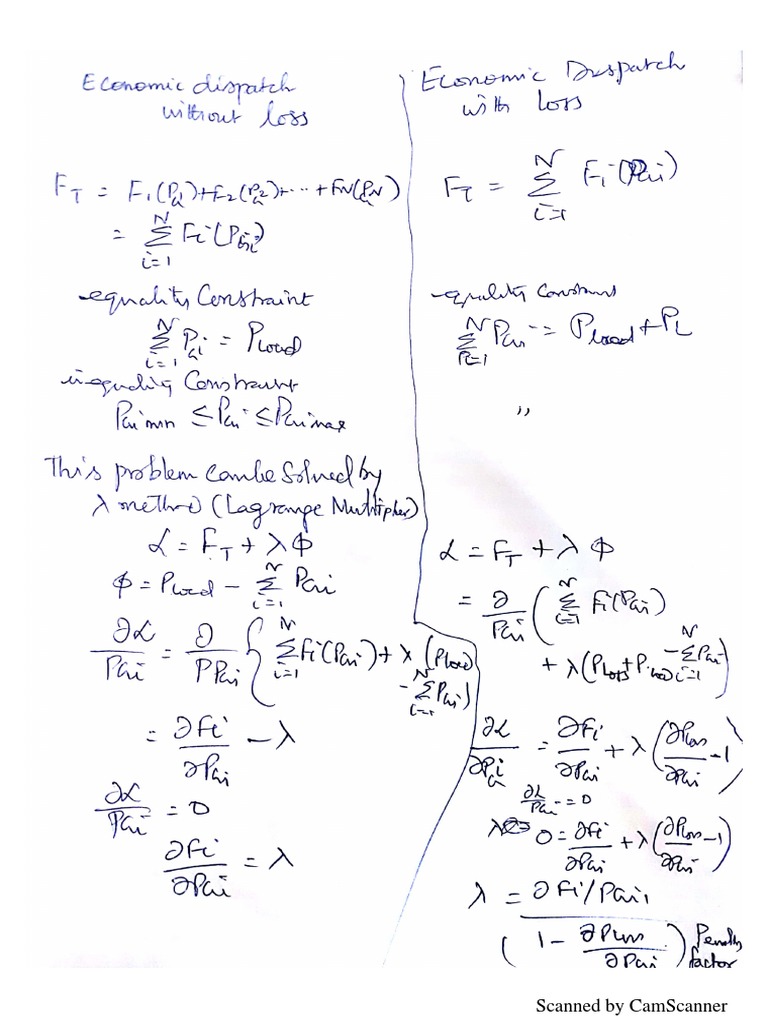 Economic dispatch
without loss
F_T = F_1(P_G1) + F_2(P_G2) + ... + F_N(P_GN)
= Σ_{i=1}^{N} F_i(P_Gi)
equality Constraint
Σ_{i=1}^{N} P_Gi = P_load
inequality Constraint
P_Gi min ≤ P_Gi ≤ P_Gi max
This problem can be Solved by
λ method (Lagrange Multiplier)
ℒ = F_T + λ ϕ
ϕ = P_load - Σ_{i=1}^{N} P_Gi
∂ℒ/P_Gi = ∂/PP_Gi { Σ_{i=1}^{N} F_i(P_Gi) + λ (P_load
- Σ_{i=1}^{N} P_Gi)
= ∂F_i/∂P_Gi - λ
∂ℒ/P_Gi = 0
∂F_i/∂P_Gi = λ
Economic Dispatch
with loss
F_T = Σ_{i=1}^{N} F_i(P_Gi)
equality Constraint
Σ_{i=1}^{N} P_Gi = P_load + P_L
"
ℒ = F_T + λ ϕ
= ∂/P_Gi ( Σ_{i=1}^{N} F_i(P_Gi)
+ λ (P_loss + P_load - Σ_{i=1}^{N} P_Gi )
∂ℒ/∂P_Gi = ∂F_i/∂P_Gi + λ (∂P_loss/∂P_Gi - 1)
∂ℒ/P_Gi = 0
0 = ∂F_i/∂P_Gi + λ (∂P_loss/∂P_Gi - 1)
λ = ∂F_i/P_Gi
(1 - ∂P_loss/∂P_Gi) Penalty
factor
Scanned by CamScanner